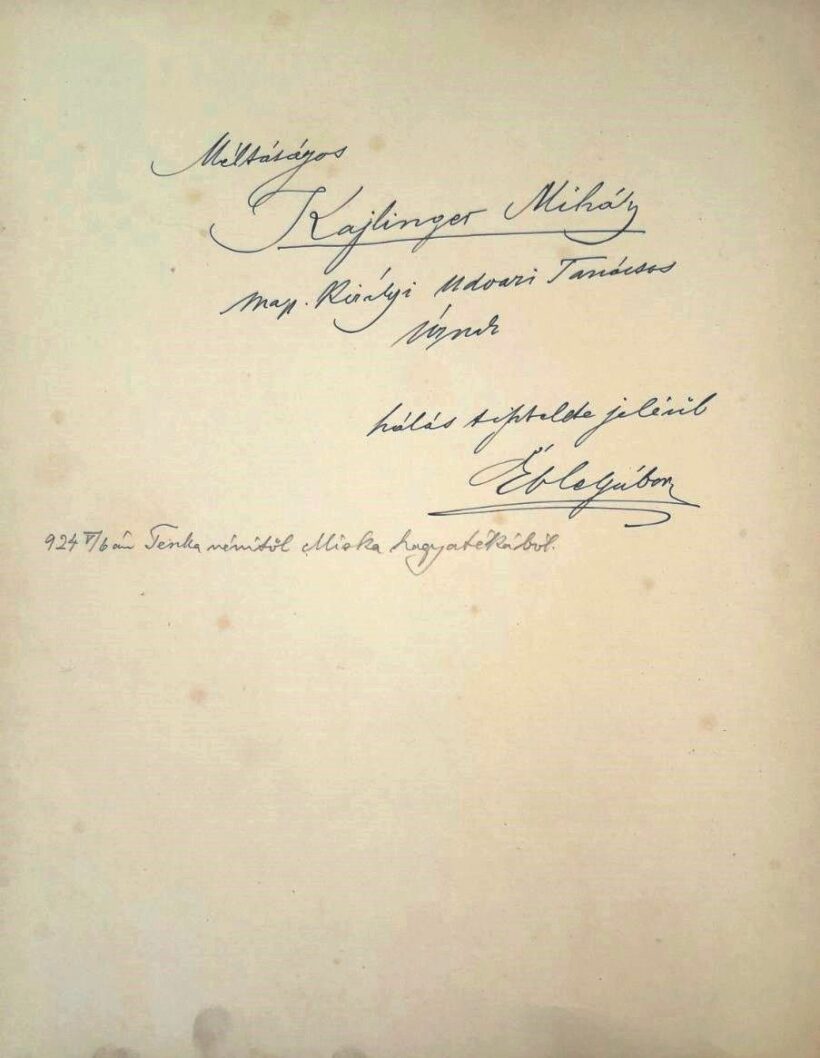 Méltóságos
Kajlinger Mihály
mag. Királyi Udvari Tanácsos
Úrnak
hálás tisztelete jeléül
Éble Gábor
924 V/6 án Terka nénitől Miska hagyatékából.